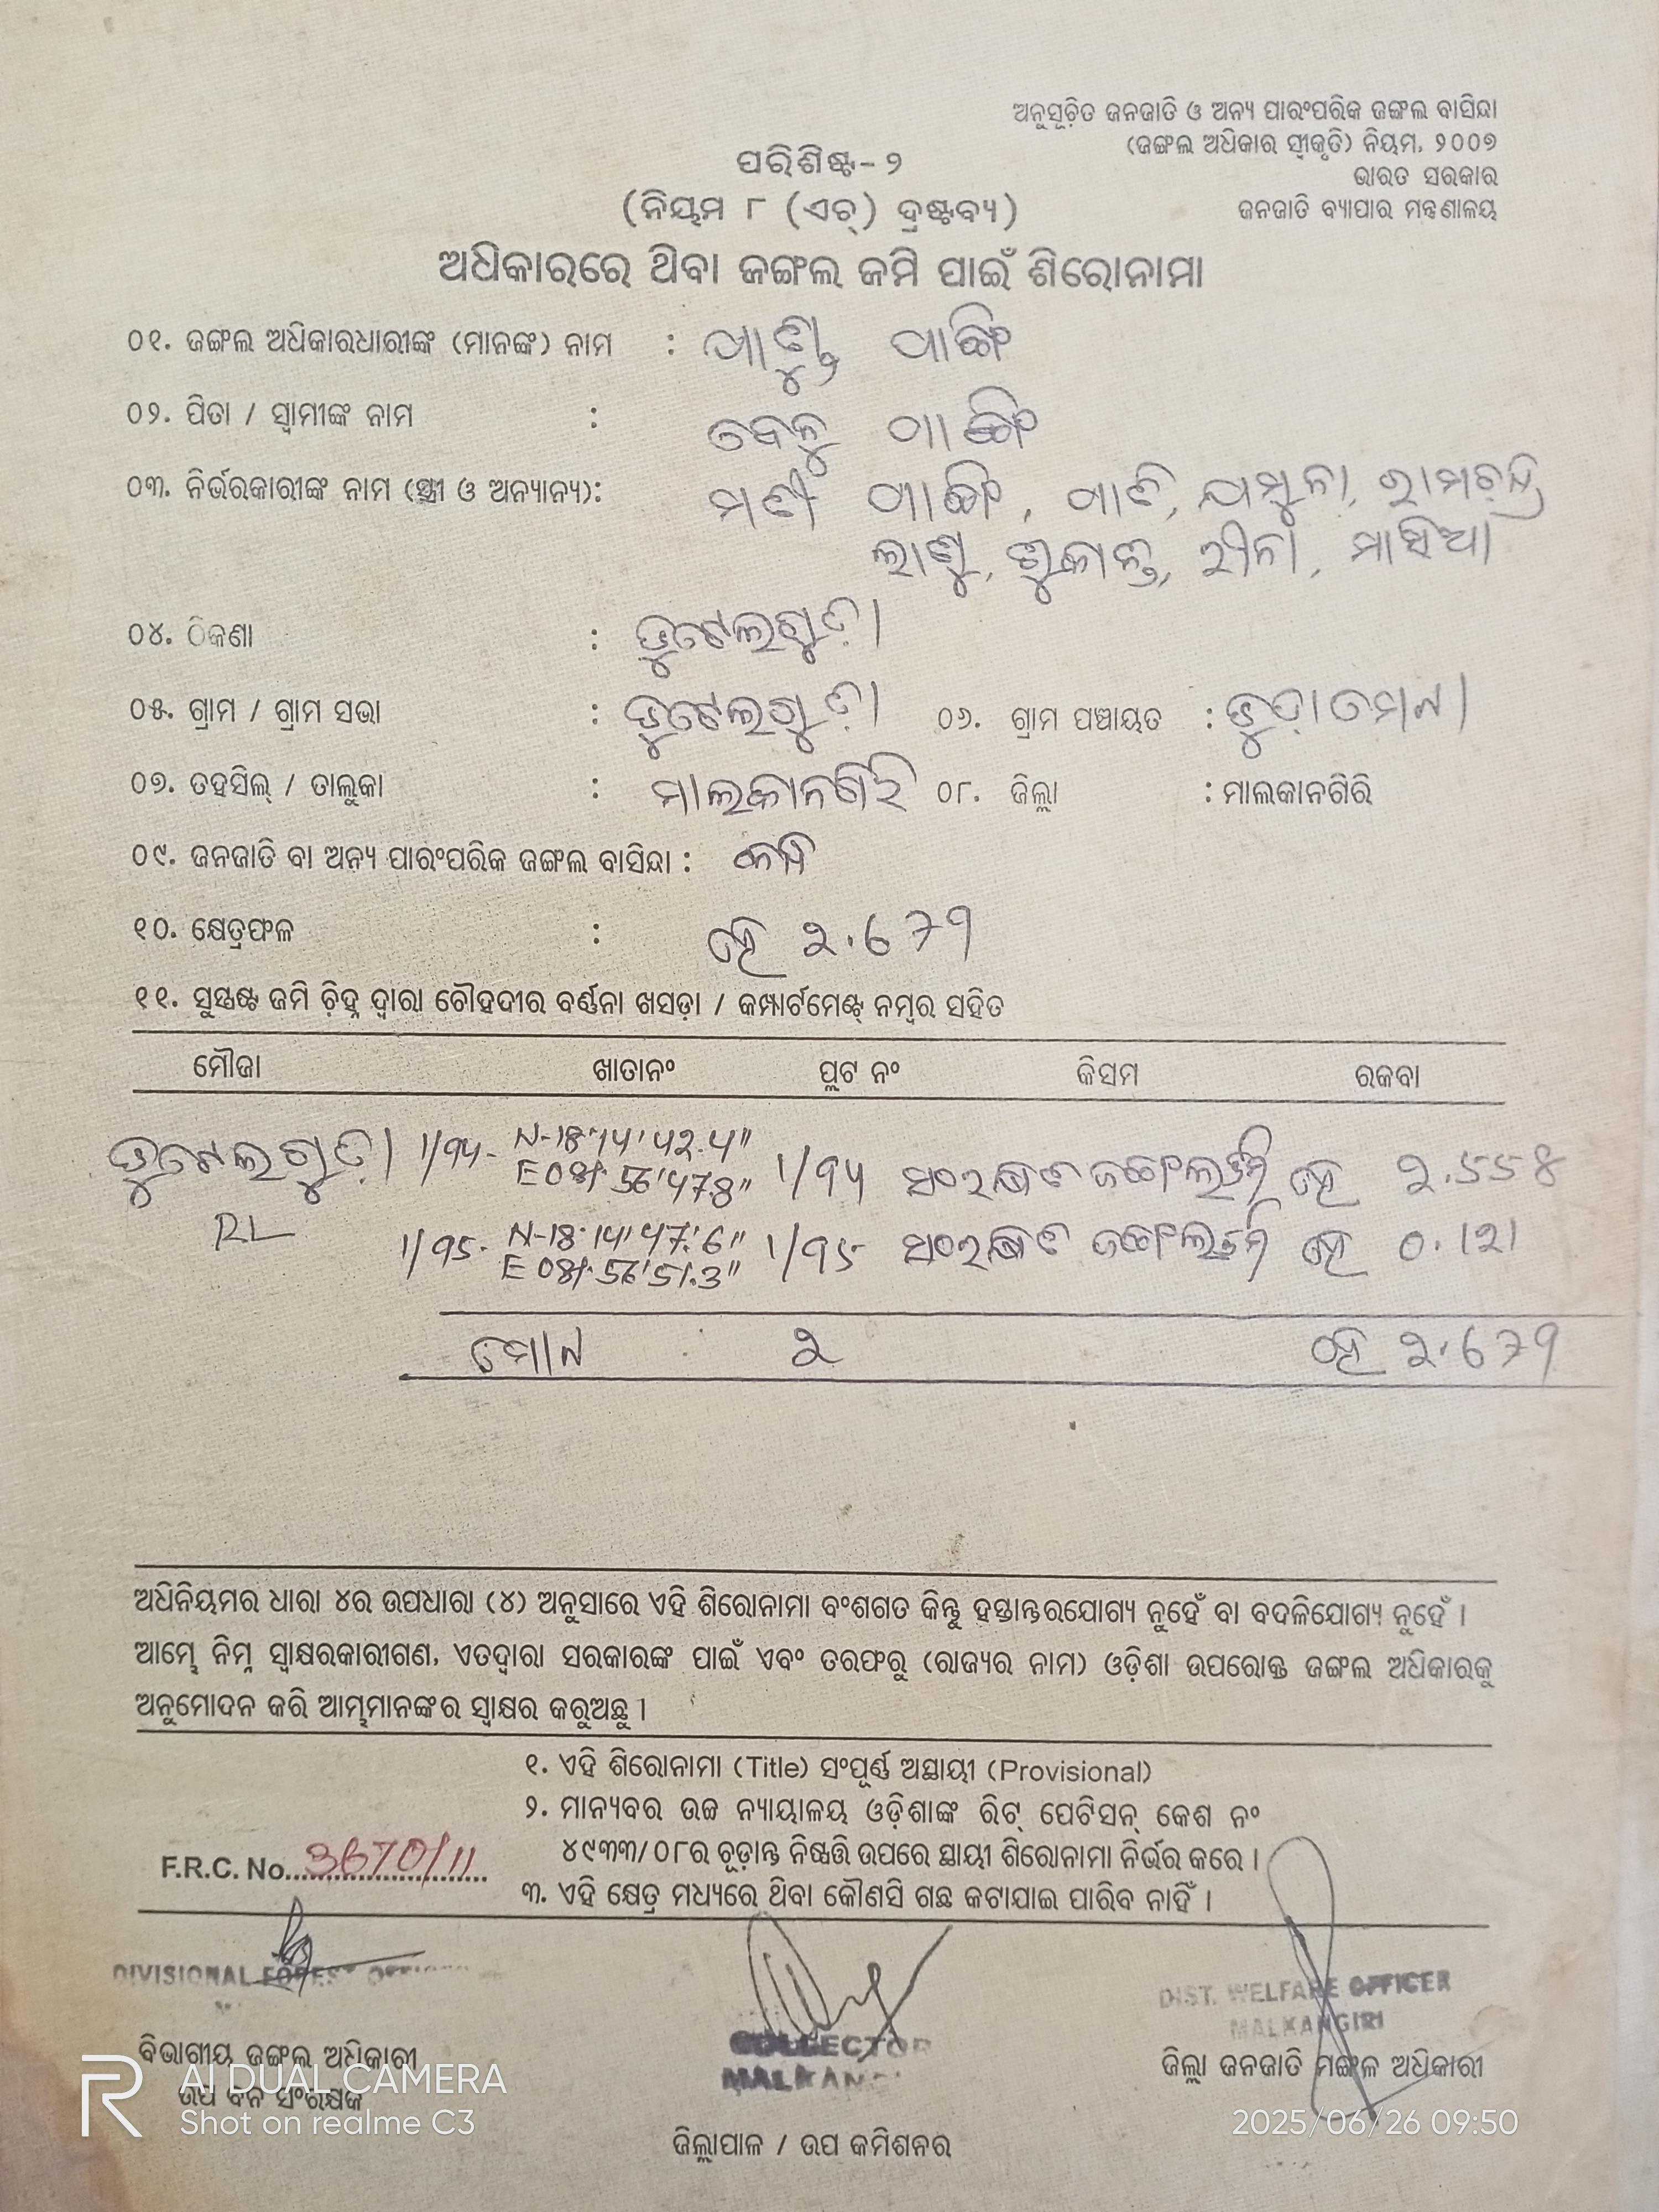 ଅନୁସୂଚିତ ଜନଜାତି ଓ ଅନ୍ୟ ପାରଂପରିକ ଜଙ୍ଗଲ ବାସିନ୍ଦା
(ଜଙ୍ଗଲ ଅଧିକାର ସ୍ୱୀକୃତି) ନିୟମ, ୨୦୦୭
ଭାରତ ସରକାର
ଜନଜାତି ବ୍ୟାପାର ମନ୍ତ୍ରଣାଳୟ
ପରିଶିଷ୍ଟ-୨
(ନିୟମ ୮ (ଏଚ୍) ଦ୍ରଷ୍ଟବ୍ୟ)
ଅଧିକାରରେ ଥିବା ଜଙ୍ଗଲ ଜମି ପାଇଁ ଶିରୋନାମା
୦୧. ଜଙ୍ଗଲ ଅଧିକାରଧାରୀଙ୍କ (ମାନଙ୍କ) ନାମ :
୦୨. ପିତା / ସ୍ୱାମୀଙ୍କ ନାମ :
୦୩. ନିର୍ଭରକାରୀଙ୍କ ନାମ (ସ୍ତ୍ରୀ ଓ ଅନ୍ୟାନ୍ୟ): ଯମୁନା, ରାମଚନ୍ଦ୍ର
୦୪. ଠିକଣା : ଭୁଟେଲଗୁଡ଼ା
୦୫. ଗ୍ରାମ / ଗ୍ରାମ ସଭା : ଭୁଟେଲଗୁଡ଼ା ୦୬. ଗ୍ରାମ ପଞ୍ଚାୟତ :
୦୭. ତହସିଲ୍ / ତାଲୁକା : ମାଲକାନଗିରି ୦୮. ଜିଲ୍ଲା : ମାଲକାନଗିରି
୦୯. ଜନଜାତି ବା ଅନ୍ୟ ପାରଂପରିକ ଜଙ୍ଗଲ ବାସିନ୍ଦା : କନ୍ଧ
୧୦. କ୍ଷେତ୍ରଫଳ : ହେ
୧୧. ସୁସ୍ପଷ୍ଟ ଜମି ଚିହ୍ନ ଦ୍ୱାରା ଚୌହଦୀର ବର୍ଣ୍ଣନା ଖସଡ଼ା / କମ୍ପାର୍ଟମେଣ୍ଟ୍ ନମ୍ବର ସହିତ
ମୌଜା ଖାତାନଂ ପ୍ଲଟ ନଂ କିସମ ରକବା
ଭୁଟେଲଗୁଡ଼ା ସଂରକ୍ଷଣ ଜଙ୍ଗେଲଜମି ହେ
RL ସଂରକ୍ଷଣ ଜଙ୍ଗେଲଜମି ହେ
ମୋଟ ହେ
ଅଧିନିୟମର ଧାରା ୪ର ଉପଧାରା (୪) ଅନୁସାରେ ଏହି ଶିରୋନାମା ବଂଶଗତ କିନ୍ତୁ ହସ୍ତାନ୍ତରଯୋଗ୍ୟ ନୁହେଁ ବା ବଦଳିଯୋଗ୍ୟ ନୁହେଁ ।
ଆମ୍ଭେ ନିମ୍ନ ସ୍ୱାକ୍ଷରକାରୀଗଣ, ଏତଦ୍ୱାରା ସରକାରଙ୍କ ପାଇଁ ଏବଂ ତରଫରୁ (ରାଜ୍ୟର ନାମ) ଓଡ଼ିଶା ଉପରୋକ୍ତ ଜଙ୍ଗଲ ଅଧିକାରକୁ
ଅନୁମୋଦନ କରି ଆମ୍ଭମାନଙ୍କର ସ୍ୱାକ୍ଷର କରୁଅଛୁ ।
୧. ଏହି ଶିରୋନାମା (Title) ସଂପୂର୍ଣ୍ଣ ଅସ୍ଥାୟୀ (Provisional)
୨. ମାନ୍ୟବର ଉଚ୍ଚ ନ୍ୟାୟାଳୟ ଓଡ଼ିଶାଙ୍କ ରିଟ୍ ପେଟିସନ୍ କେଶ ନଂ
୪୯୩୩/୦୮ର ଚୂଡ଼ାନ୍ତ ନିଷ୍ପତ୍ତି ଉପରେ ସ୍ଥାୟୀ ଶିରୋନାମା ନିର୍ଭର କରେ ।
F.R.C. No. 3670/11
୩. ଏହି କ୍ଷେତ୍ର ମଧ୍ୟରେ ଥିବା କୌଣସି ଗଛ କଟାଯାଇ ପାରିବ ନାହିଁ ।
DIVISIONAL FOREST OFFICER
ବିଭାଗୀୟ ଜଙ୍ଗଲ ଅଧିକାରୀ
ଉପ ବନ ସଂରକ୍ଷକ
COLLECTOR
MALKANGIRI
ଜିଲ୍ଲାପାଳ / ଉପ କମିଶନର
DIST. WELFARE OFFICER
MALKANGIRI
ଜିଲ୍ଲା ଜନଜାତି ମଙ୍ଗଳ ଅଧିକାରୀ
AI DUAL CAMERA
Shot on realme C3
2025/06/26 09:50